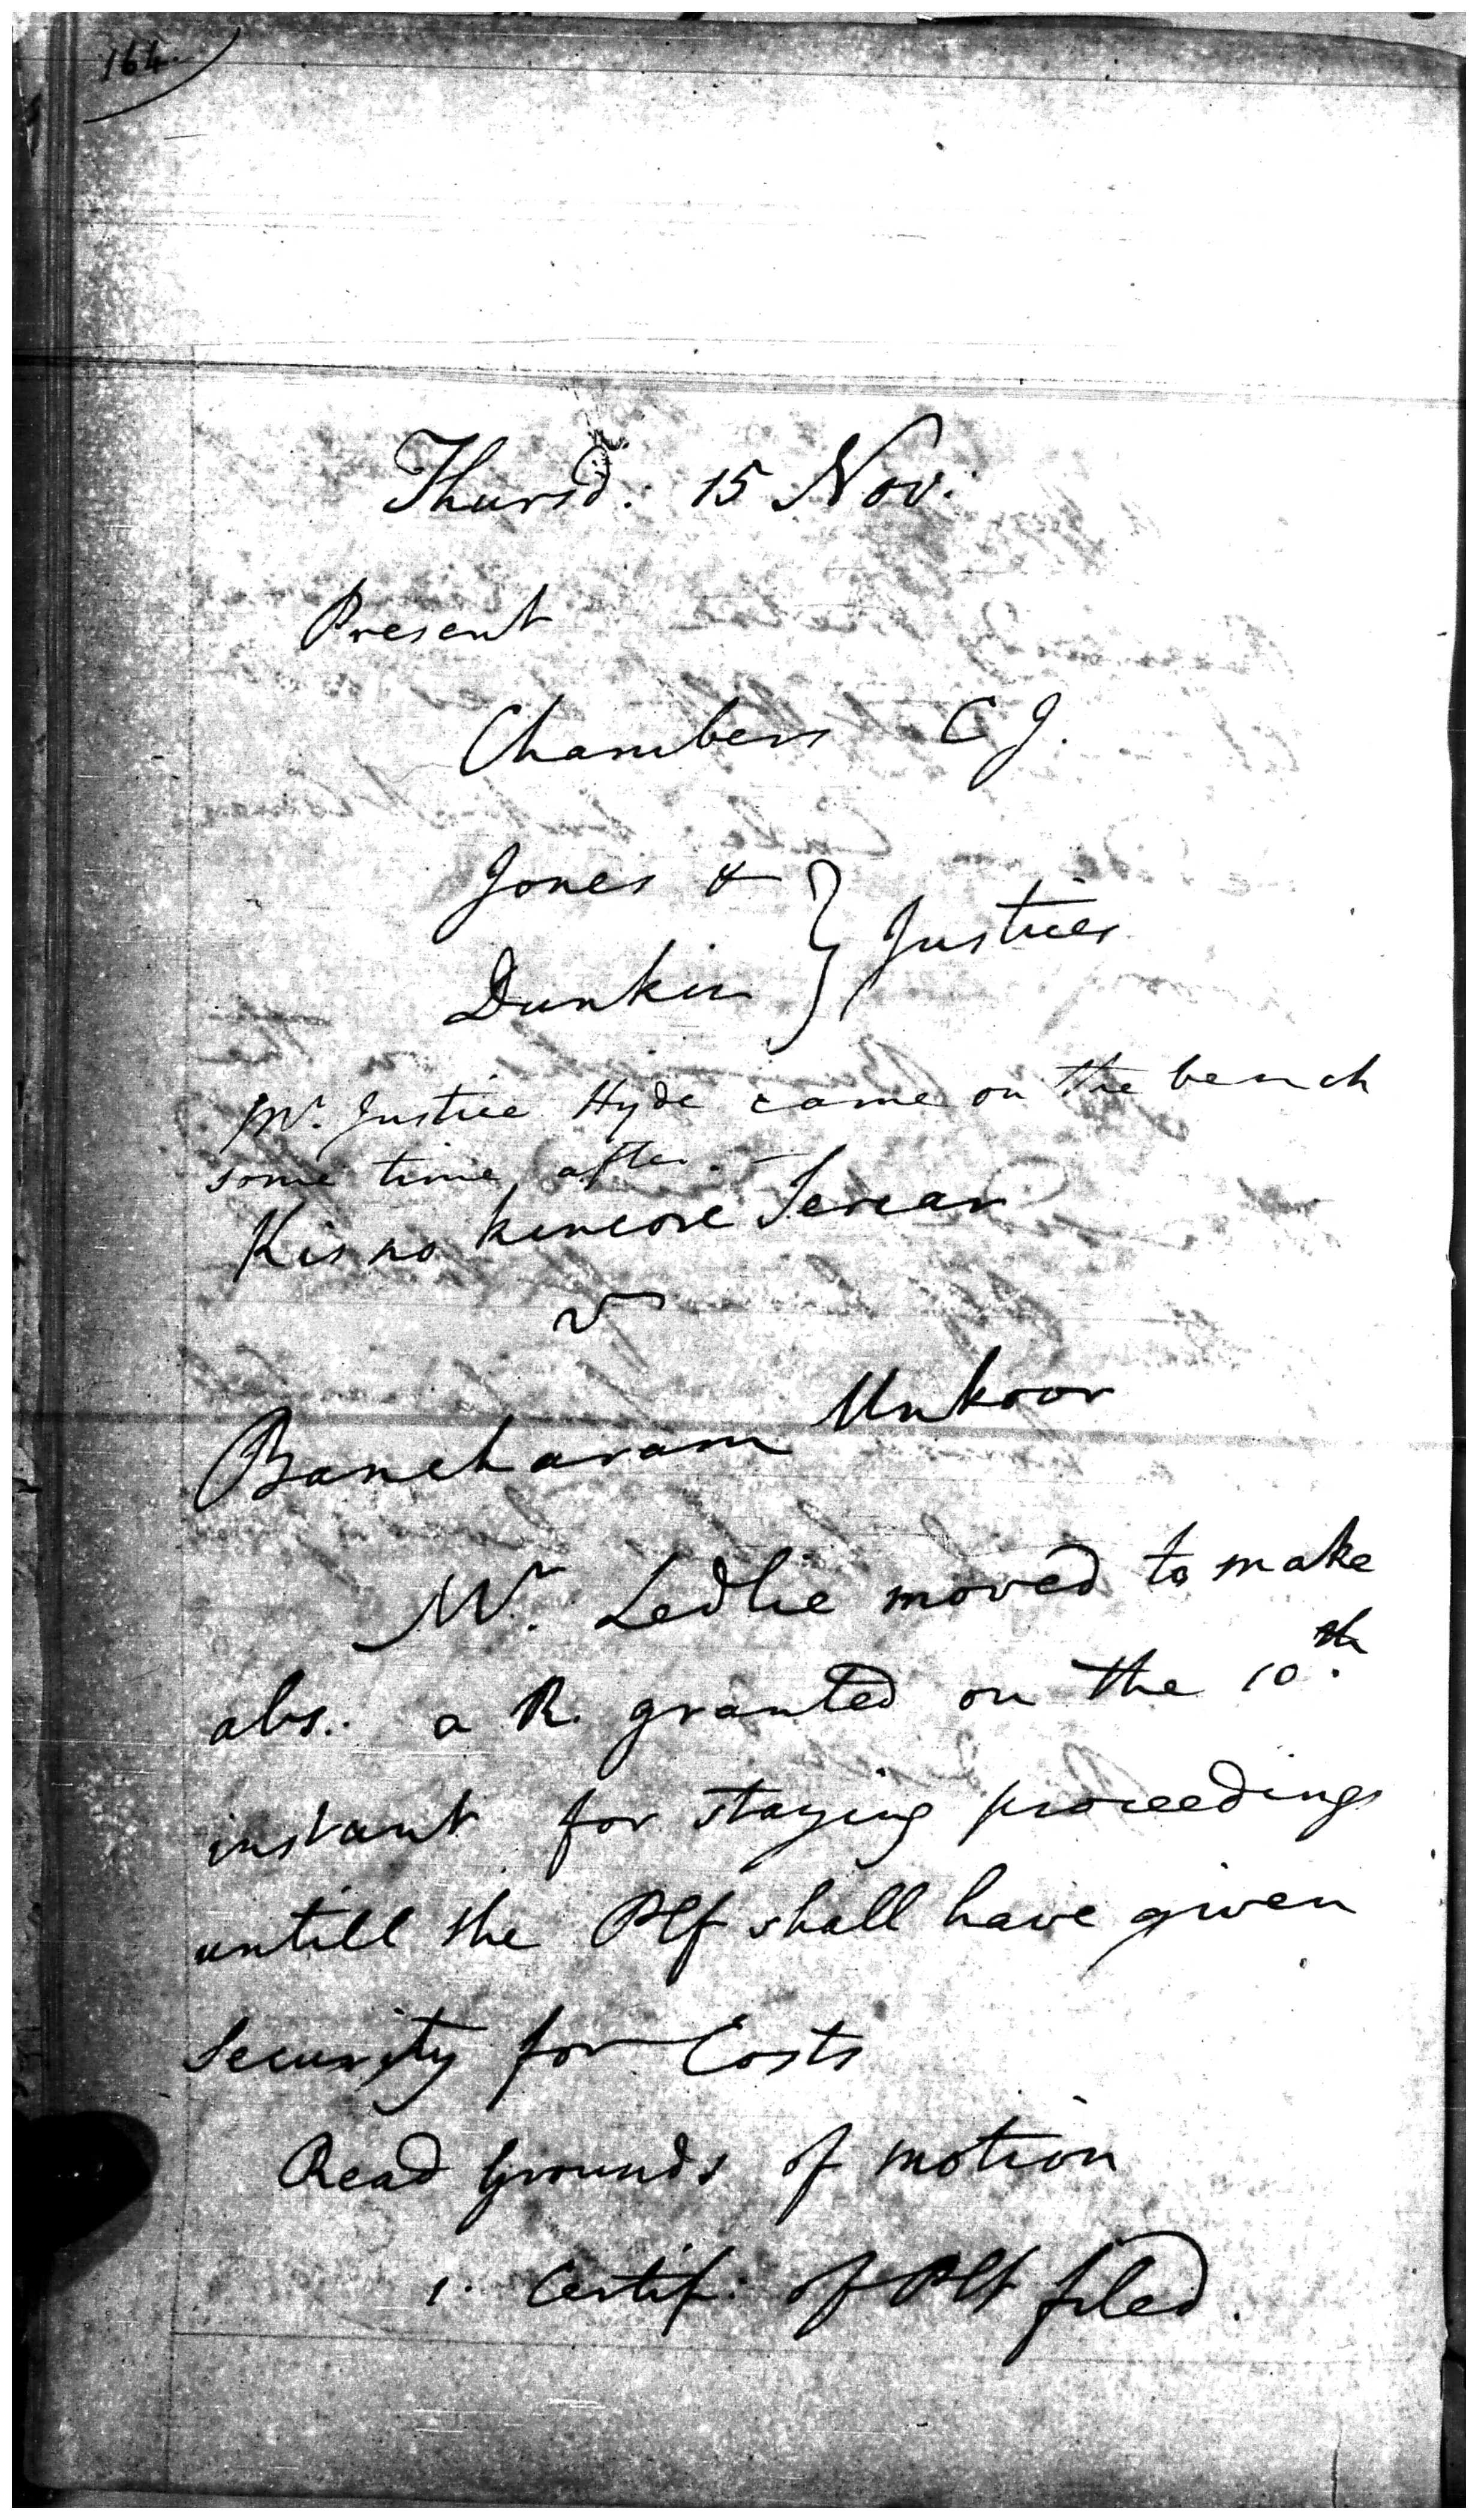 164.
Thursd: 15 Nov:
Present
Chambers CJ.
Jones &
Dunkin } Justices
Mr. Justice Hyde came on the bench
some time after. —
Kisno kincore Sercar
vs
Bancharam Unkoor
Mr. Ledlie moved to make
abs: a R. granted on the 10th.
instant for staying proceedings
untill the Plf shall have given
Security for Costs
Read Grounds of motion
1. Certif: of Plt filed.